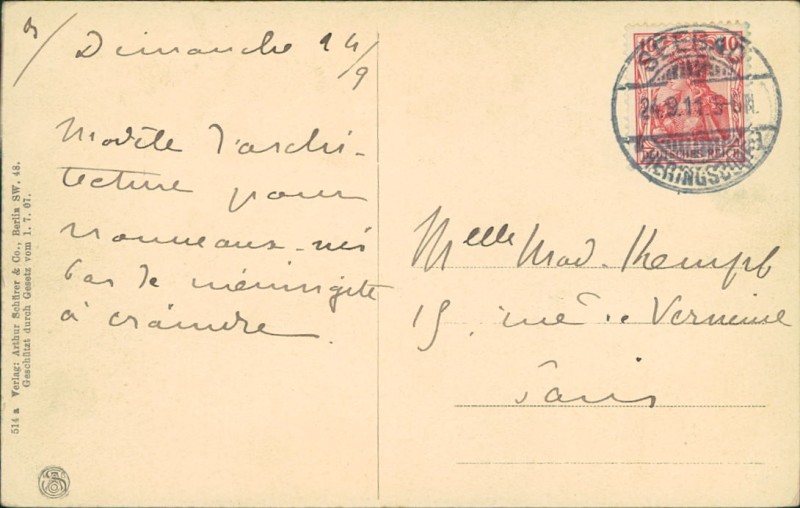 Dimanche 24/9
Modèle d'archi-
tecture pour
nouveaux-nés
Pas de méningite
à craindre.
10 10
SEEBAD
24.9.11. 5-6N.
HERINGSDORF
DEUTSCHES REICH
Melle Mad. Kempf
15, rue de Verneuil
Paris
514 a Verlag: Arthur Schürer & Co., Berlin SW. 48.
Geschützt durch Gesetz vom 1. 7. 07.